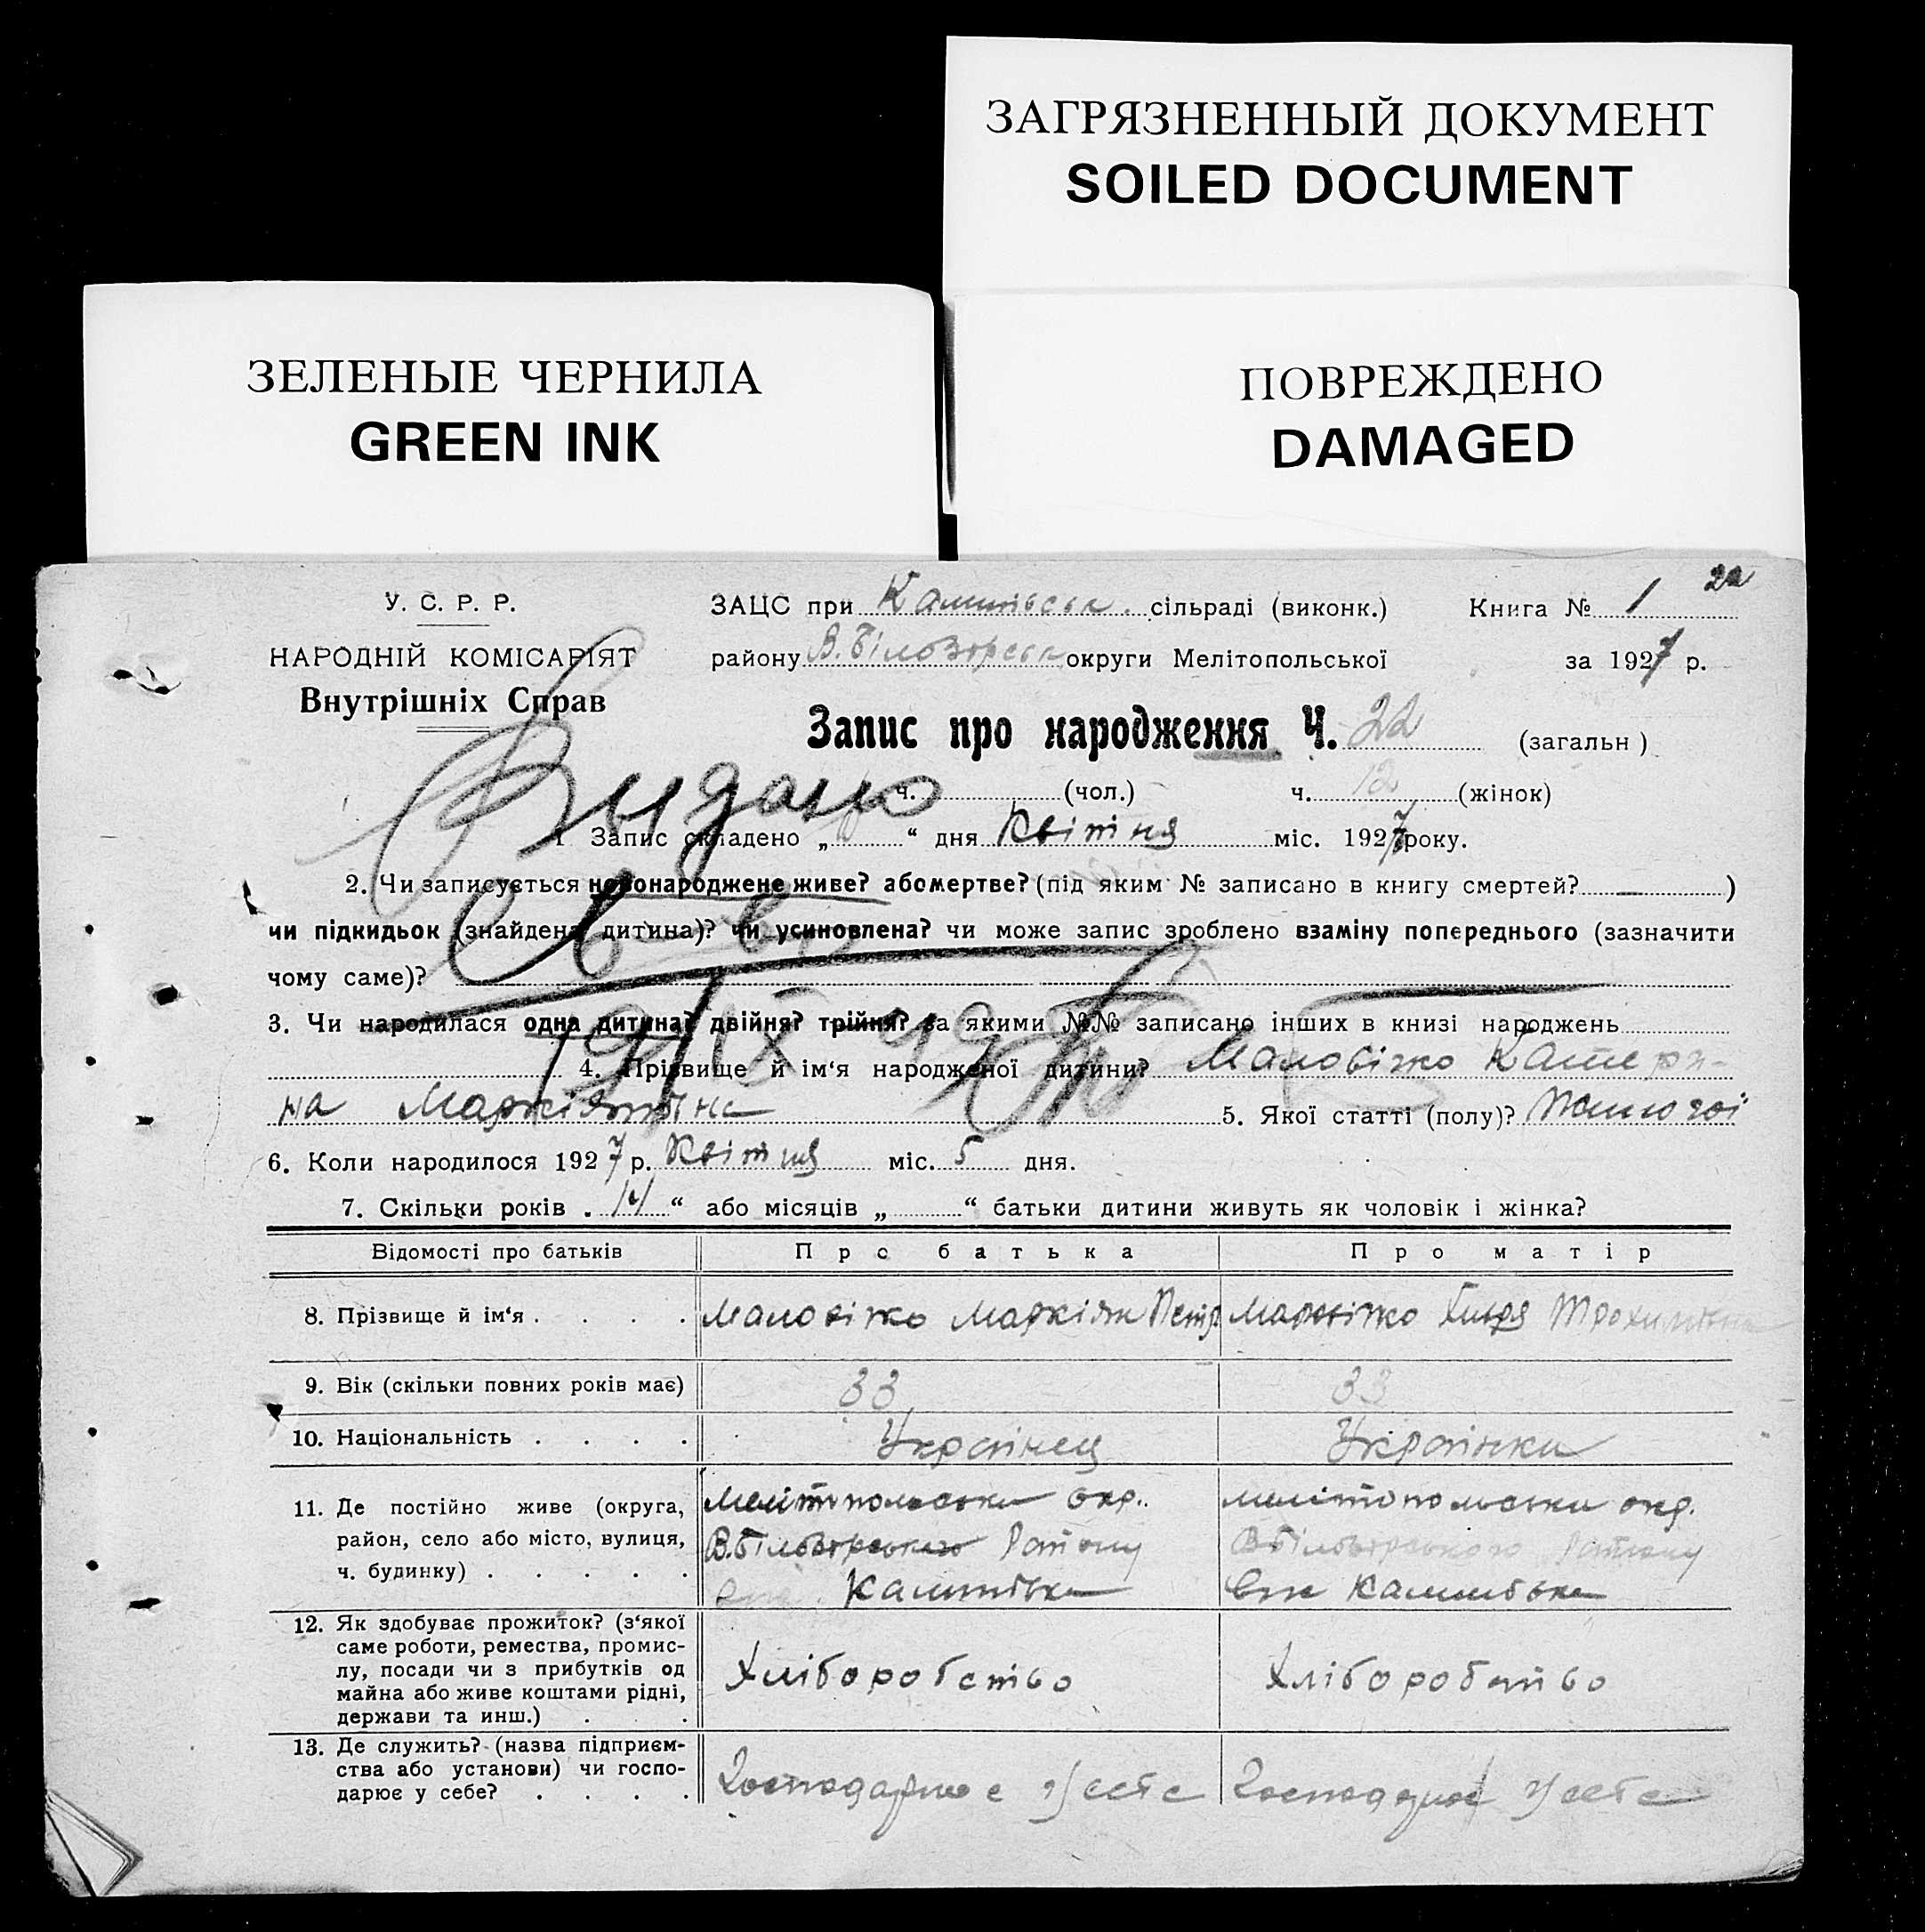 ЗАГРЯЗНЕННЫЙ ДОКУМЕНТ
SOILED DOCUMENT
ЗЕЛЕНЫЕ ЧЕРНИЛА
GREEN INK
ПОВРЕЖДЕНО
DAMAGED
22
У. С. Р. Р.
НАРОДНІЙ КОМІСАРІЯТ
Внутрішніх Справ
ЗАЦС при сільраді (виконк.) Книга № 1
району В. Білозерськ округи Мелітопольської за 1927 р.
Запис про народження Ч. 22 (загальн)
ч. (чол.) ч. 12 (жінок)
Видано
1 Запис складено „ “ дня Квітня міс. 1927 року.
2. Чи записується новонароджене живе? або мертве? (під яким № записано в книгу смертей? — )
чи підкидьок (знайдена дитина)? чи усиновлена? чи може запис зроблено взаміну попереднього (зазначити
чому саме)?
3. Чи народилася одна дитина? двійня? трійня? за якими №№ записано інших в книзі народжень
4. Прізвище й ім‘я народженої дитини? Маловічко Катери-
на Маркіянівна 5. Якої статті (полу)? Жіночої
6. Коли народилося 1927 р. Квітня міс. 5 дня.
7. Скільки років „ 14 “ або місяців „ “ батьки дитини живуть як чоловік і жінка?
Відомості про батьків Про батька Про матір
8. Прізвище й ім‘я . . . . Маловічко Маркіян Петр Маловічко Трохимівна
9. Вік (скільки повних років має) 33 33
10. Національність . . . . Українець Українка
11. Де постійно живе (округа,
район, село або місто, вулиця,
ч. будинку) . . . . .
Мелітопольська окр.
В. Білозерського Району
Мелітопольська окр.
В Білозерського Району
12. Як здобуває прожиток? (з‘якої
саме роботи, ремества, промис-
лу, посади чи з прибутків од
майна або живе коштами рідні,
держави та инш.) . .
Хліборобство
Хліборобство
13. Де служить? (назва підприєм-
ства або установи) чи госпо-
дарює у себе? . . . .
Господарює у себе
Господарює у себе